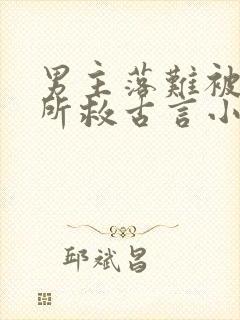 男主落難被
所救古言小
邱斌昌